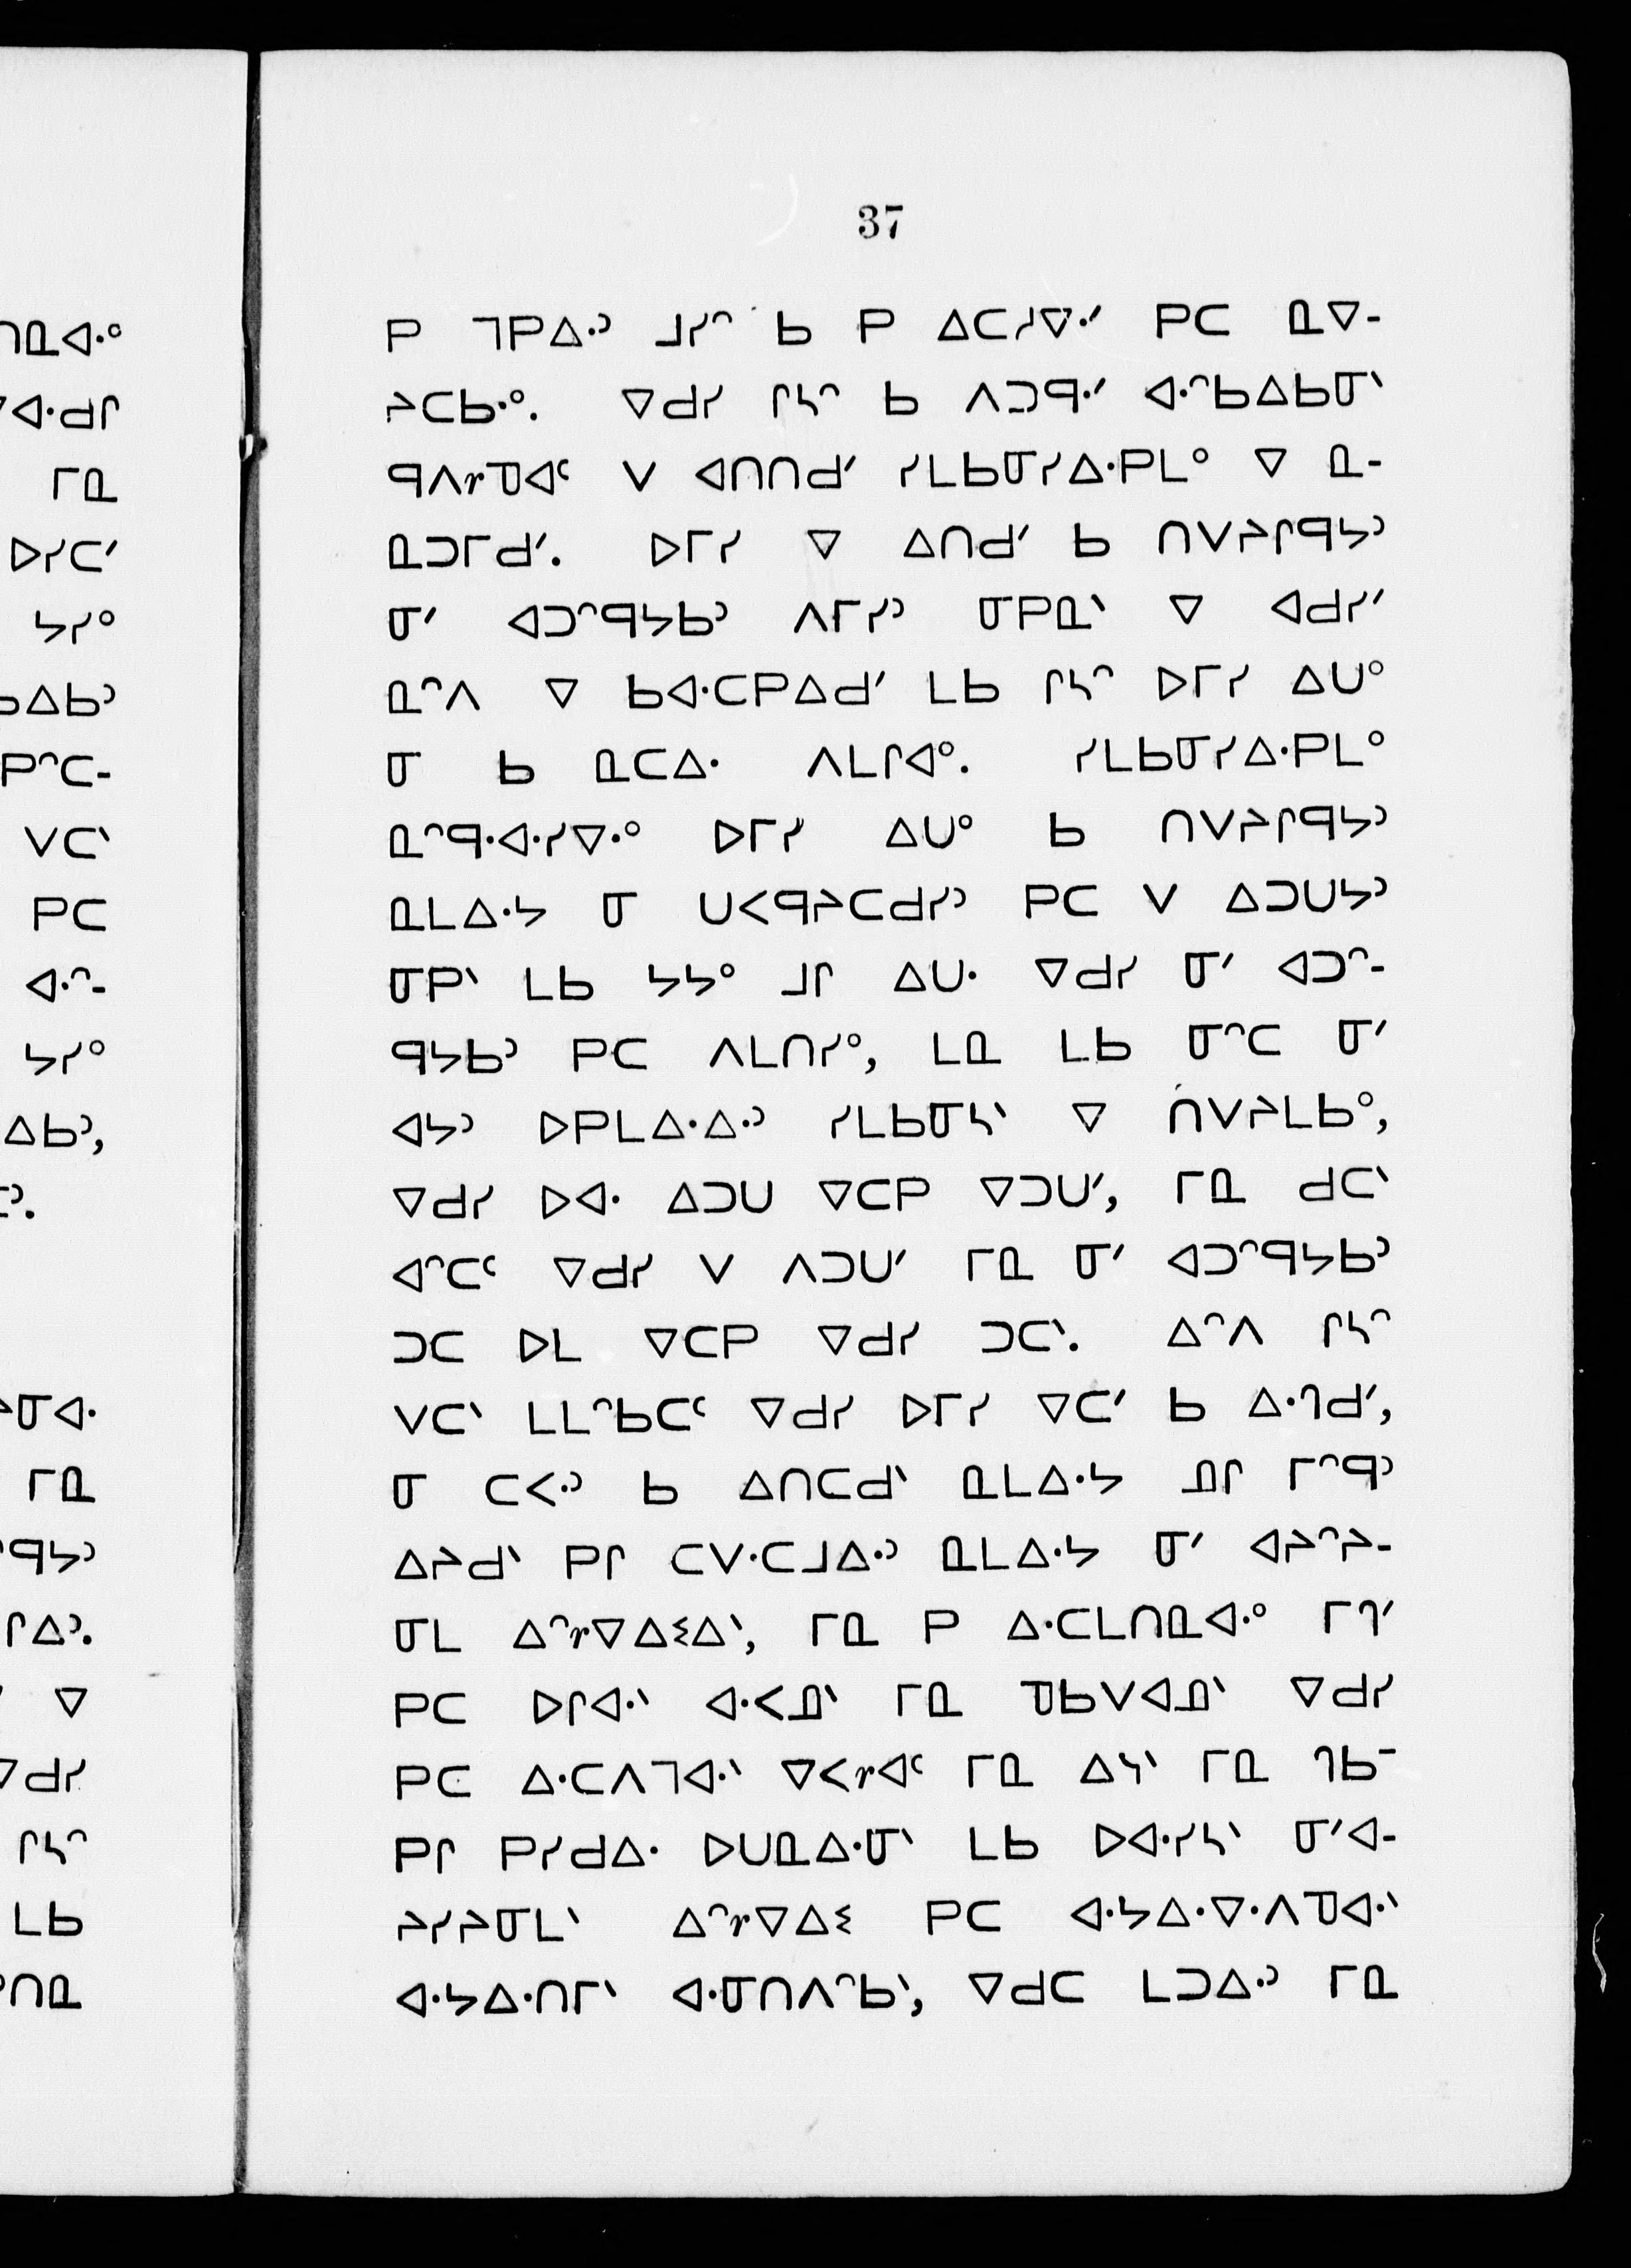 37
ᑭ ᒣᑭᐃᐧᐣ ᒧᓯᐢ ᑲ ᑭ ᐃᑕᓱᐁᐧᐟ ᑭᑕ ᓇᐁ-
ᔨᑕᑲᐧᐤ. ᐁᑯᓯ ᒋᓴᐢ ᑲ ᐱᑐᑫᐧᐟ ᐊᐧᐢᑲᐃᑲᓂᐠ
ᑫᐱᕒᓀᐊᑦ ᐯ ᐊᑎᑎᑯᐟ ᓯᒪᑲᓂᓯᐃᐧᑭᒪᐤ ᐁ ᓇ-
ᓇᑐᒥᑯᐟ. ᐅᒥᓯ ᐁ ᐃᑎᑯᐟ ᑲ ᑎᐯᔨᒋᑫᔭᐣ
ᓂᐟ ᐊᑐᐢᑫᔭᑲᐣ ᐱᒥᓯᐣ ᓂᑭᓇᐠ ᐁ ᐊᑯᓯᐟ
ᓇᐢᐱ ᐁ ᑲᐊᐧᑕᑭᐃᑯᐟ ᒪᑲ ᒋᓴᐢ ᐅᒥᓯ ᐃᑌᐤ
ᓂ ᑲ ᓇᑕᐃᐧ ᐱᒪᒋᐊᐤ. ᓯᒪᑲᓂᓯᐃᐧᑭᒪᐤ
ᓇᐢᑫᐧᐊᐧᓯᐁᐧᐤ ᐅᒥᓯ ᐃᑌᐤ ᑲ ᑎᐯᔨᒋᑫᔭᐣ
ᓇᒪᐃᐧᔭ ᓂ ᑌᐸᑫᔨᑕᑯᓯᐣ ᑭᑕ ᐯ ᐃᑐᑌᔭᐣ
ᓂᑭᐠ ᒪᑲ ᔭᔭᐤ ᒧᒋ ᐃᑌᐧ ᐁᑯᓯ ᓂᐟ ᐊᑐᐢ-
ᑫᔭᑲᐣ ᑭᑕ ᐱᒪᑎᓯᐤ, ᒪᓇ ᒪᑲ ᓂᐢᑕ ᓂᐟ
ᐊᔭᐣ ᐅᑭᒪᐃᐧᐃᐧᐣ ᓯᒪᑲᓂᓴᐠ ᐁ ᑎᐯᔨᒪᑲᐤ,
ᐁᑯᓯ ᐅᐊᐧ ᐃᑐᑌ ᐁᑕᑭ ᐁᑐᑌᐟ, ᒥᓇ ᑯᑕᐠ
ᐊᐢᑕᑦ ᐁᑯᓯ ᐯ ᐱᑐᑌᐟ ᒥᓇ ᓂᐟ ᐊᑐᐢᑫᔭᑲᐣ
ᑐᑕ ᐅᒪ ᐁᑕᑭ ᐁᑯᓯ ᑐᑕᐠ. ᐃᐢᐱ ᒋᓴᐢ
ᐯᑕᐠ ᒪᒪᐢᑲᑕᑦ ᐁᑯᓯ ᐅᒥᓯ ᐁᑕᐟ ᑲ ᐃᐧᒉᑯᐟ,
ᓂ ᑕᐸᐧᐣ ᑲ ᐃᑎᑕᑯᐠ ᓇᒪᐃᐧᔭ ᓅᒋ ᒥᐢᑫᐣ
ᐃᔨᑯᐠ ᑭᒋ ᑕᐯᐧᑕᒧᐃᐧᐣ ᓇᒪᐃᐧᔭ ᓂᐟ ᐊᔨᐢᔨ-
ᓂᒪ ᐃᐢᕒᐁᐃᓬᐃᐠ, ᒥᓇ ᑭ ᐃᐧᑕᒪᑎᓇᐊᐧᐤ ᒥᒉᐟ
ᑭᑕ ᐅᒋᐊᐧᐠ ᐊᐧᐸᓄᐠ ᒥᓇ ᓀᑲᐯᐊᓄᐠ ᐁᑯᓯ
ᑭᑕ ᐃᐧᑕᐱᒣᐊᐧᐠ ᐁᐸᕒᐊᑦ ᒥᓇ ᐃᓴᐠ ᒥᓇ ᒉᑲᑊ
ᑭᒋ ᑭᓯᑯᐃᐧ ᐅᑌᓇᐃᐧᓂᐠ ᒪᑲ ᐅᐊᐧᓯᓴᐠ ᓂᐟᐊ-
ᔨᓯᔨᓂᒪᐠ ᐃᐢᕒᐁᐃᓬ ᑭᑕ ᐊᐧᔭᐃᐧᐁᐧᐱᓀᐊᐧᐠ
ᐊᐧᔭᐃᐧᑎᒥᐠ ᐊᐧᓂᑎᐱᐢᑲᐠ, ᐁᑯᑕ ᒪᑐᐃᐧᐣ ᒥᓇ